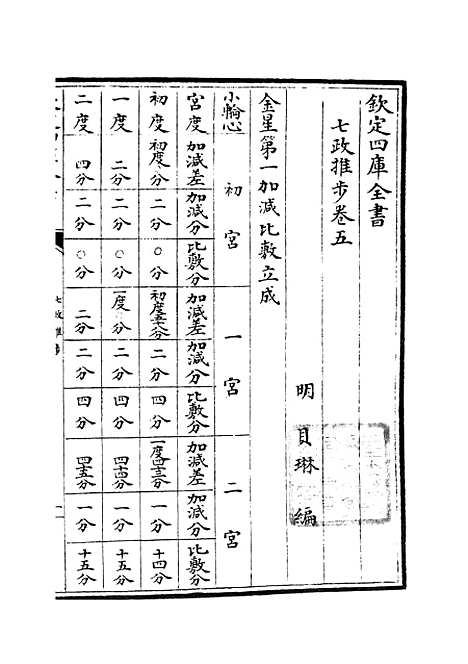 欽定四庫全書
七政推步卷五
明 貝琳 編
金星第一加減比敷立成
小輪心 初宮 一宮 二宮
宮度 加減差 加減分 比敷分 加減差 加減分 比敷分 加減差 加減分 比敷分
初度 初度分 二分 〇分 初度五八分 二分 四分 一度四三分 一分 十四分
一度 二分 二分 〇分 一度分 二分 四分 四四分 一分 十五分
二度 四分 二分 〇分 二分 二分 四分 四五分 一分 十五分
七政推步